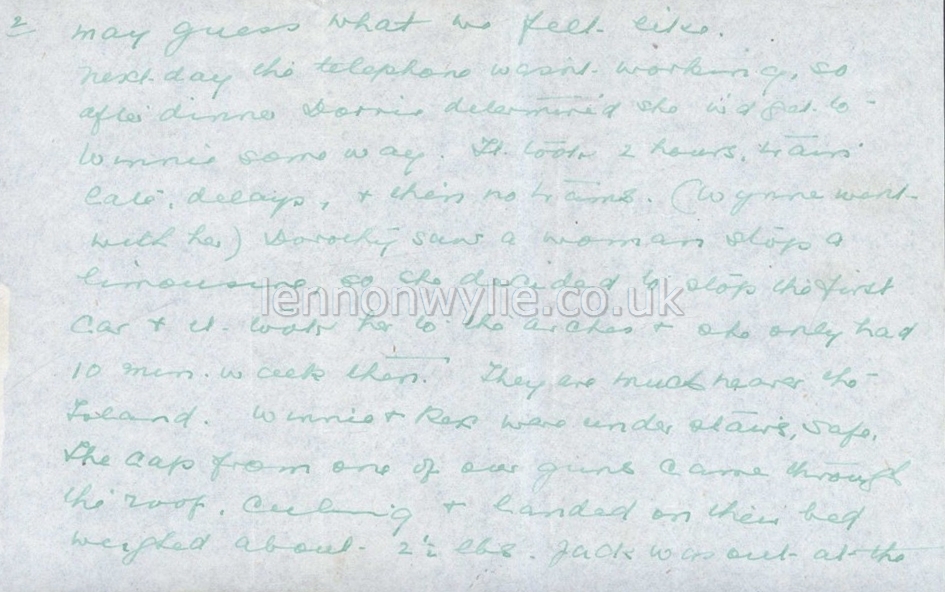 2 may guess what we felt like.
Next day the telephone wasn't working, so
after dinner Dorrie determined she wd get to
Winnie some way. It took 2 hours, trains
late, delays, & then no trams. (Wynne went
with her) Dorothy saw a woman stop a
limousine so she decided to stop the first
car & it took her to the arches & she only had
10 min. walk then. They are much nearer the
Island. Winnie & Rex were under stairs, safe.
The cap from one of our guns came through
the roof, ceiling & landed on their bed
weighed about 2½ lbs. Jack was out at the
lennonwylie.co.uk